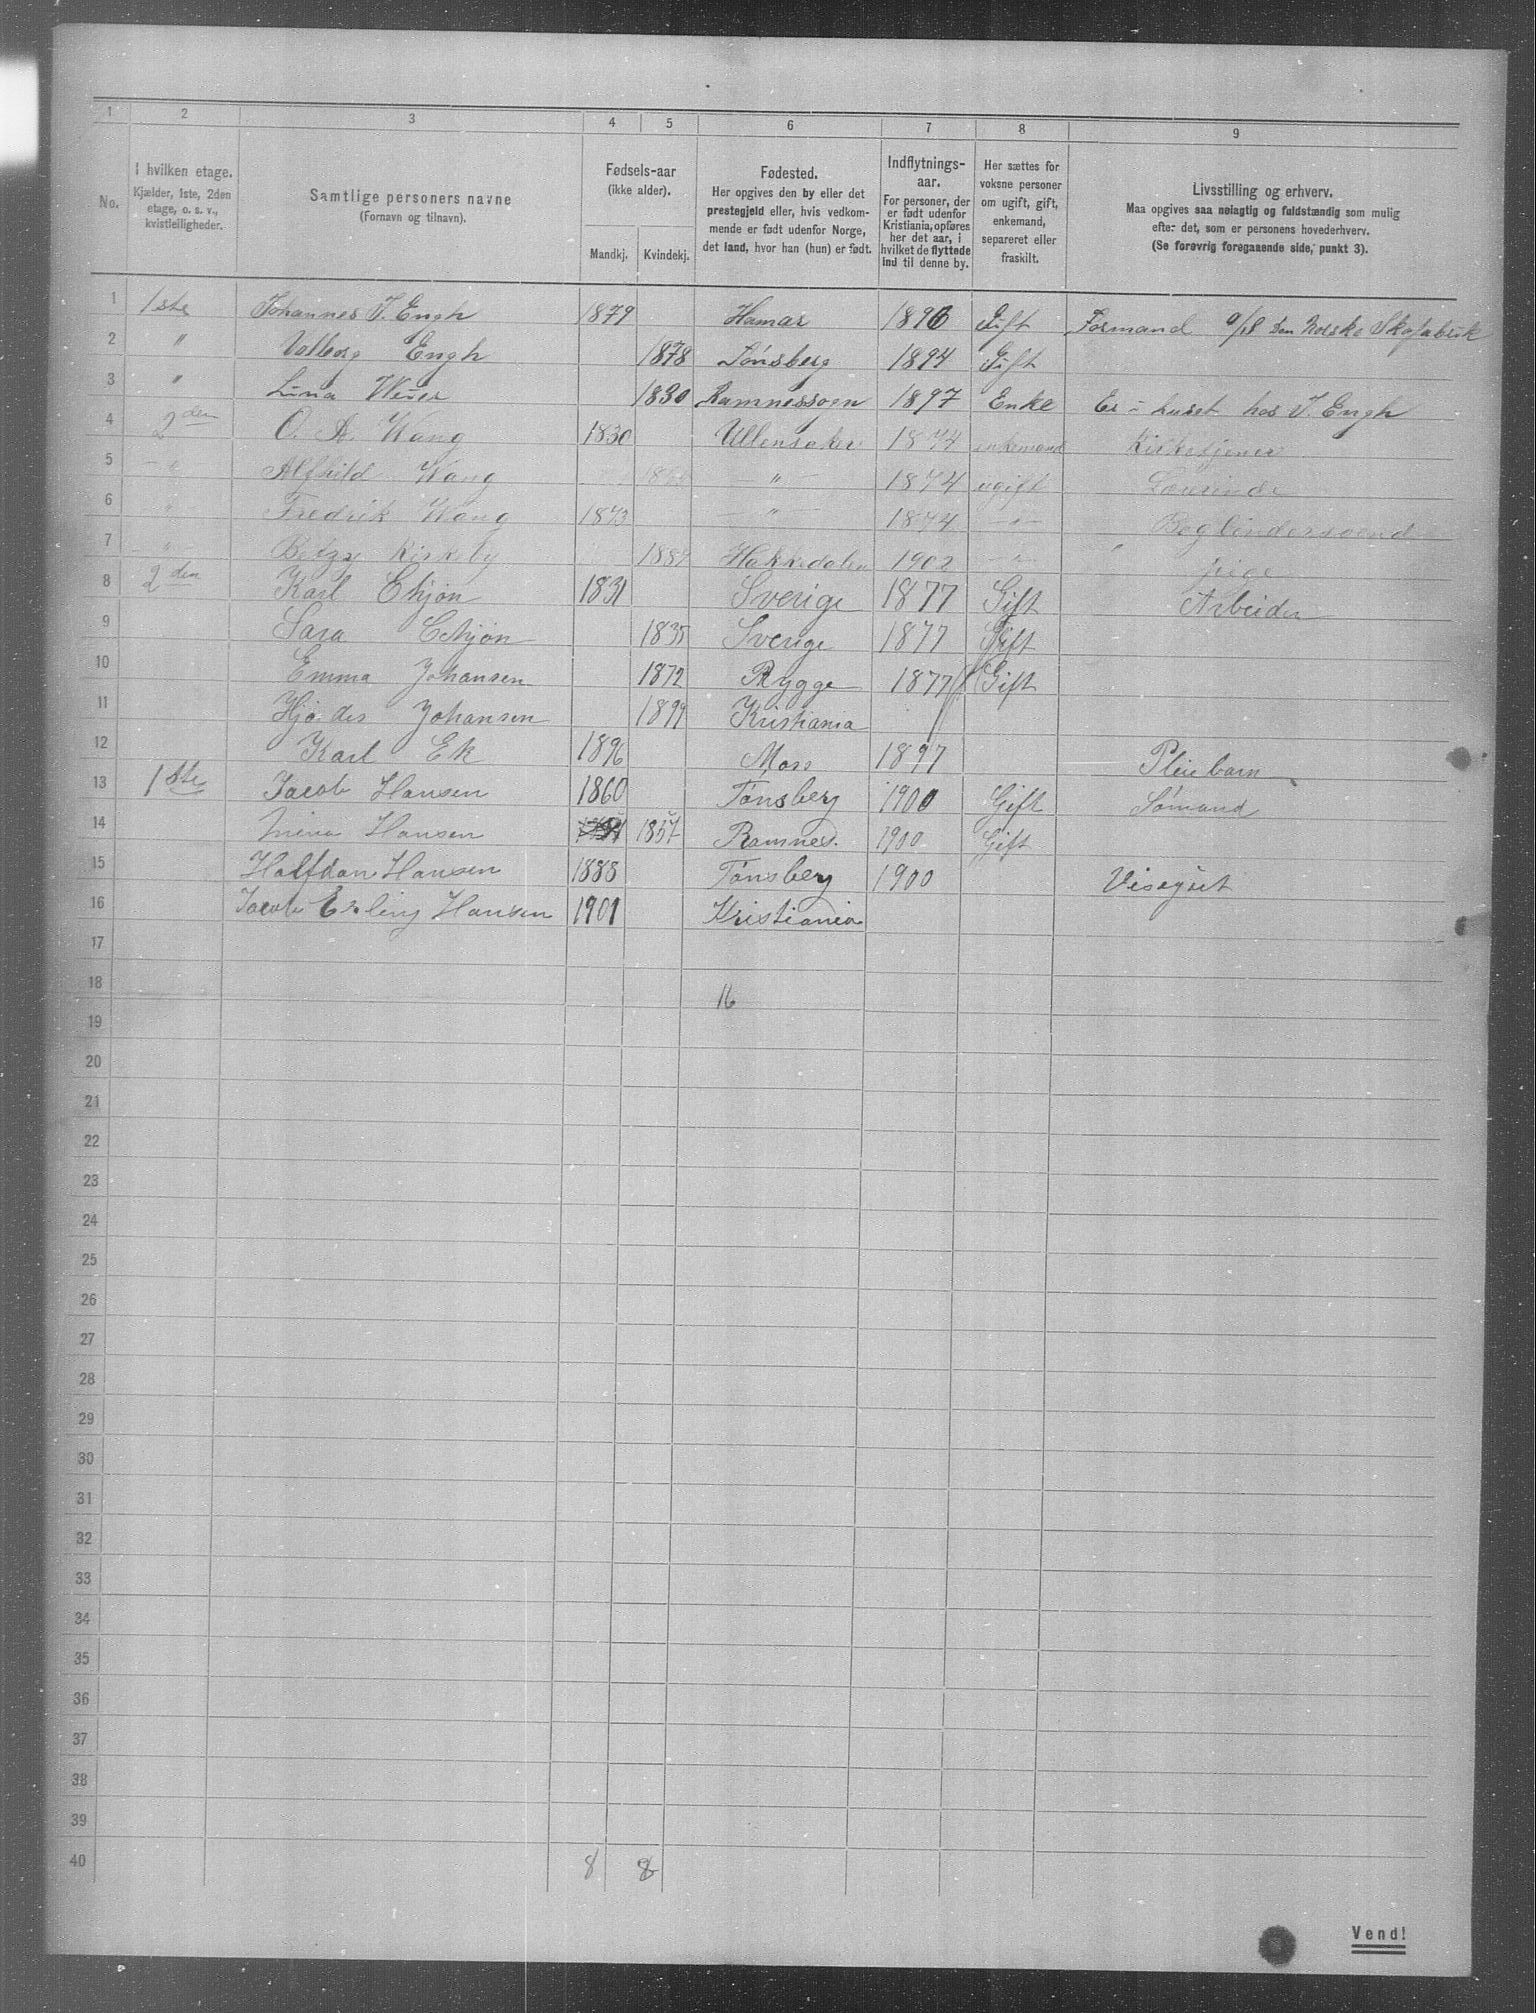 1 2 3 4 5 6 7 8 9
No.
I hvilken etage.
Kjælder, 1ste, 2den
etage, o. s. v.,
kvistleiligheder.
Samtlige personers navne
(Fornavn og tilnavn).
Fødsels-aar
(ikke alder).
Mandkj. Kvindekj.
Fødested.
Her opgives den by eller det
prestegjeld eller, hvis vedkom-
mende er født udenfor Norge,
det land, hvor han (hun) er født.
Indflytnings-
aar.
For personer, der
er født udenfor
Kristiania, opføres
her det aar, i
hvilket de flyttede
ind til denne by.
Her sættes for
voksne personer
om ugift, gift,
enkemand,
separeret eller
fraskilt.
Livsstilling og erhverv.
Maa opgives saa nøiagtig og fuldstændig som mulig
efter det, som er personens hovederhverv.
(Se forøvrig foregaaende side, punkt 3).
1 1ste Johannes J. Engh 1879 Hamar 1896 Gift Formand a/s Den Norske Skofabrik
2 " Valborg Engh 1878 Tønsberg 1894 Gift
3 " 1830 Ramnessogn 1897 Enke Er i huset hos J. Engh
4 2den O. A. Wang 1830 Ullensaker 1874 enkemand Kirketjener
5 " Alfhild Wang " 1874 ugift Lærerinde
6 " Fredrik Wang 1873 " 1874 "
7 " Betzy Kirkeby Hakkedalen 1902 " pige
8 2den Karl Ehjøn 1831 Sverige 1877 Gift Arbeider
9 Sara Ehjøn 1835 Sverige 1877 Gift
10 Emma Johansen 1872 Rygge 1877 Gift
11 Hjørdis Johansen 1899 Kristiania
12 Karl Ek 1896 Moss 1897 Pleiebarn
13 1ste Jacob Hansen 1860 Tønsberg 1900 Gift Sømand
14 Hansen 1857 Ramnes. 1900 Gift
15 Halfdan Hansen 1888 Tønsberg 1900 Visegut
16 Jacob Erling Hansen 1901 Kristiania
17
18 16
19
20
21
22
23
24
25
26
27
28
29
30
31
32
33
34
35
36
37
38
39
40 8 8
Vend!